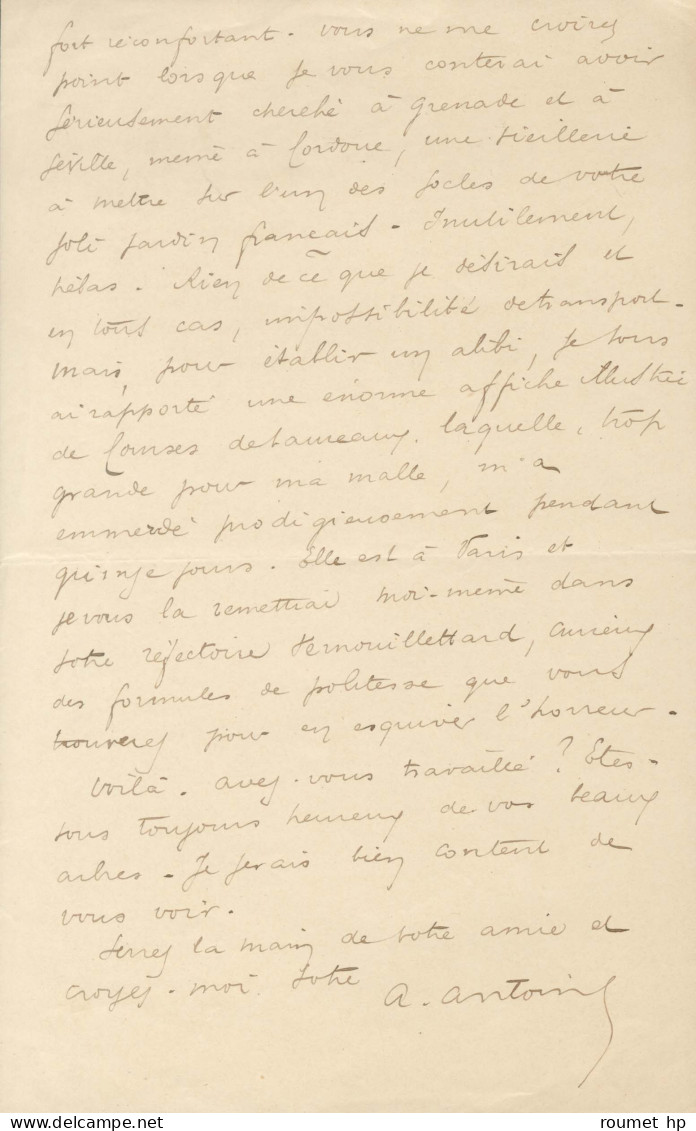 fort réconfortant. Vous ne me croirez
point lorsque je vous conterai avoir
sérieusement cherché à Grenade et à
Séville, même à Cordoue, une vieillerie
à mettre sur l'un des socles de votre
joli jardin français. Inutilement,
hélas. Rien de ce que je désirais et
en tous cas, impossibilité de transport.
Mais, pour établir un alibi, je vous
ai rapporté une énorme affiche illustrée
de Courses de taureaux, laquelle, trop
grande pour ma malle, m'a
emmerdé prodigieusement pendant
quinze jours. Elle est à Paris et
je vous la remettrai moi-même dans
votre réfectoire Vernouillettard, curieux
des formules de politesse que vous
trouverez pour en esquiver l'horreur.
Voilà. Avez-vous travaillé ? Etes-
vous toujours heureux de vos beaux
arbres. Je serais bien content de
vous voir.
Serrez la main de votre amie et
croyez-moi. Votre
A. Antoine
roumet hp